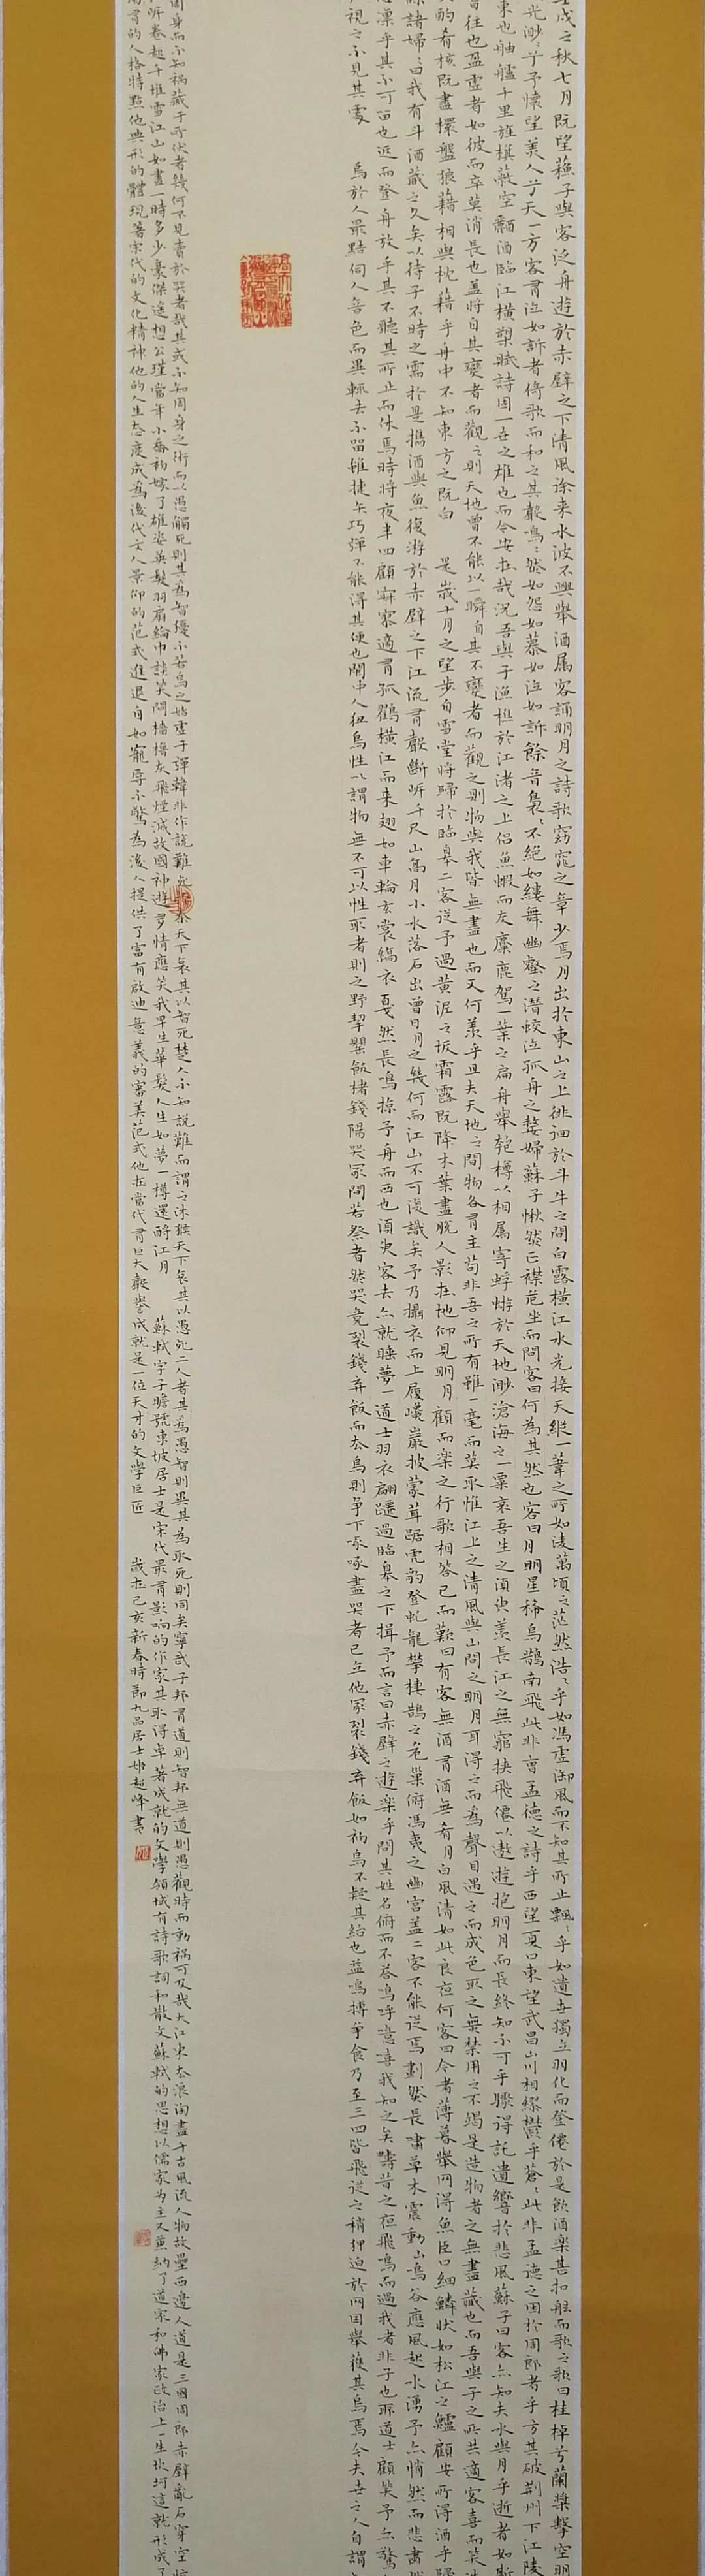 戌之秋七月既望蘇子與客泛舟遊於赤壁之下清風徐来水波不興舉酒属客誦明月之詩歌窈窕之章少焉月出於東山之上徘徊於斗牛之間白露横江水光接天縱一葦之所如凌萬頃之茫然浩〻乎如馮虚御風而不知其所止飄〻乎如遺世獨立羽化而登僊於是飲酒楽甚扣舷而歌之歌曰桂棹兮蘭槳擊空明
光渺〻兮予懷望美人兮天一方客有泣如訴者倚歌而和之其聲鳴〻然如怨如慕如泣如訴餘音裊〻不絶如縷舞幽壑之潛蛟泣孤舟之嫠婦蘇子愀然正襟危坐而問客曰何為其然也客曰月明星稀烏鵲南飛此非曹孟德之詩乎西望夏口東望武昌山川相繆鬱乎蒼〻此非孟德之困於周郎者乎方其破荆州下江陵
東也舳艫千里旌旗蔽空釃酒臨江横槊賦詩固一世之雄也而今安在哉況吾與子漁樵於江渚之上侣魚蝦而友麋鹿駕一葉之扁舟舉匏樽以相属寄蜉蝣於天地渺滄海之一粟哀吾生之須臾羨長江之無窮挟飛僊以遨遊抱明月而長終知不可乎驟得託遺響於悲風蘇子曰客亦知夫水與月乎逝者如斯
往也盈虚者如彼而卒莫消長也盖将自其變者而觀之則天地曾不能以一瞬自其不變者而觀之則物與我皆無盡也而又何羨乎且夫天地之間物各有主苟非吾之所有雖一毫而莫取惟江上之清風與山間之明月耳得之而為聲目遇之而成色取之無禁用之不竭是造物者之無盡藏也而吾與子之所共適客喜而笑
酌肴核既盡杯盤狼藉相與枕藉乎舟中不知東方之既白 是歲十月之望步自雪堂将歸於臨皋二客從予過黄泥之坂霜露既降木葉盡脱人影在地仰見明月顧而楽之行歌相答已而歎曰有客無酒有酒無肴月白風清如此良夜何客曰今者薄暮舉网得魚巨口細鱗狀如松江之鱸顧安所得酒乎歸
諸婦〻曰我有斗酒藏之久矣以待子不時之需於是攜酒與魚復游於赤壁之下江流有聲斷岸千尺山高月小水落石出曾日月之幾何而江山不可復識矣予乃攝衣而上履巉巖披蒙茸踞虎豹登虬龍攀棲鵲之危巢俯馮夷之幽宫盖二客不能從焉劃然長嘯草木震動山鳴谷應風起水湧予亦悄然而悲肅
凜乎其不可留也返而登舟放乎其不聽其所止而休焉時将夜半四顧寂寥適有孤鶴横江而来翅如車輪玄裳縞衣戛然長鳴掠予舟而西也須臾客去亦就睡夢一道士羽衣翩躚過臨皋之下揖予而言曰赤壁之遊楽乎問其姓名俯而不答嗚呼噫嘻我知之矣疇昔之夜飛鳴而過我者非子也耶道士顧笑予亦驚
視之不見其處 烏於人最黠伺人音色而異輒去不留雖捷矢巧彈不能得其便也閩中人狃烏性以謂物無不可以性取者則之野挈罌飯楮錢陽哭冢間若祭者然哭竟裂錢弃飯而去烏則争下啄啄盡哭者已立他冢裂錢弃飯如初烏不疑其紿也益鳴搏争食乃至三四皆飛從之稍狎迫於网因舉獲其烏焉今夫世之人自謂
周身而不知禍藏于所伏者幾何不見賣於哭者哉其或不知周身之術而以愚觸死則其為智優不若烏之始虚于彈韓非作説難死秦天下哀其以智死楚人不知説難而謂之沐猴天下哀其以愚死二人者其為愚智則異其為取死則同矣寧武子邦有道則智邦無道則愚觀時而動禍可及哉大江東去浪淘盡千古風流人物故壘西邊人道是三國周郎赤壁亂石穿空
岸卷起千堆雪江山如畫一時多少豪傑遥想公瑾當年小喬初嫁了雄姿英髮羽扇綸巾談笑間檣櫓灰飛煙滅故國神遊多情應笑我早生華髮人生如夢一樽還酹江月 蘇軾字子瞻號東坡居士是宋代最有影响的作家其取得卓著成就的文學領域有詩歌詞和散文蘇軾的思想以儒家为主又兼納了道家和佛家政治上一生坎坷這就形成了
有的人格特點他典形的體現著宋代的文化精神他的人生态度成為後代文人景仰的范式進退自如寵辱不驚為後人提供了富有啟迪意義的審美范式他在當代有巨大聲譽成就是一位天才的文學巨匠 歲在己亥新春時節九品居士姚超峰書